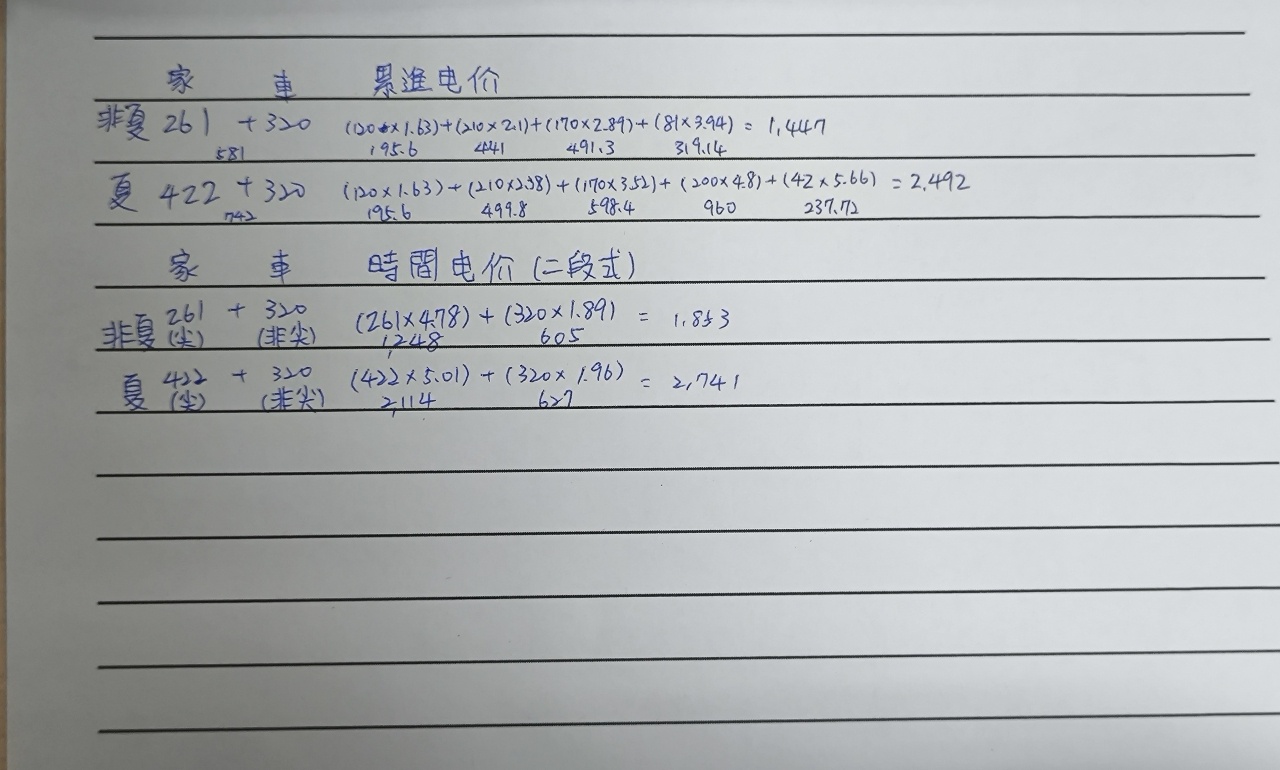 家 車 累進电价
非夏 261 + 320 (120×1.63)+(210×2.1)+(170×2.89)+(81×3.94) = 1,447
581 195.6 441 491.3 319.14
夏 422 + 320 (120×1.63)+(210×2.38)+(170×3.52)+(200×4.8)+(42×5.66) = 2,492
742 195.6 499.8 598.4 960 237.72
家 車 時間电价(二段式)
非夏 261 + 320 (261×4.78)+(320×1.89) = 1,853
(尖) (非尖) 1,248 605
夏 422 + 320 (422×5.01)+(320×1.96) = 2,741
(尖) (非尖) 2,114 627